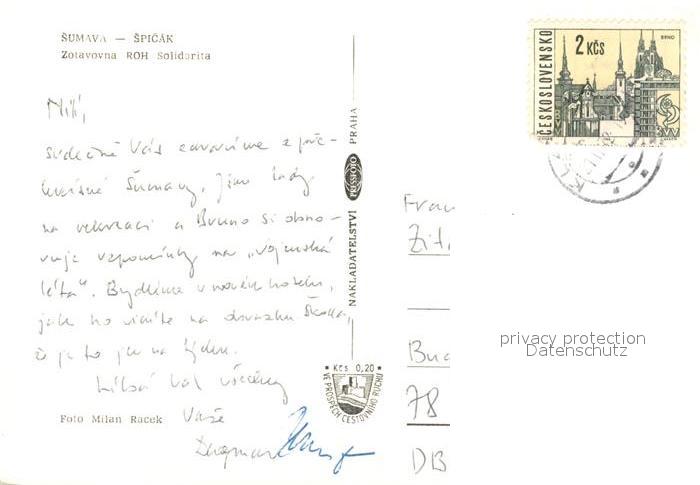 ŠUMAVA — ŠPIČÁK
Zotavovna ROH Solidarita
Milí,
srdečně Vás zdravíme z překrásné Šumavy. Jsme tady
na rekreaci a Bruno si obno-
vuje vzpomínky na „vojenská
léta". Bydlíme v novém hotelu,
jak ho vidíte na obrázku. Škoda,
že je to jen na týden.
Líbá Vás všechny
Vaše
Dagmar
Foto Milan Racek
NAKLADATELSTVÍ PRESSFOTO PRAHA
* Kčs 0,20 *
VE PROSPĚCH CESTOVNÍHO RUCHU
ČESKOSLOVENSKO
2 KČS
BRNO
BVV
Frau
Zit
78
DB
privacy protection
Datenschutz